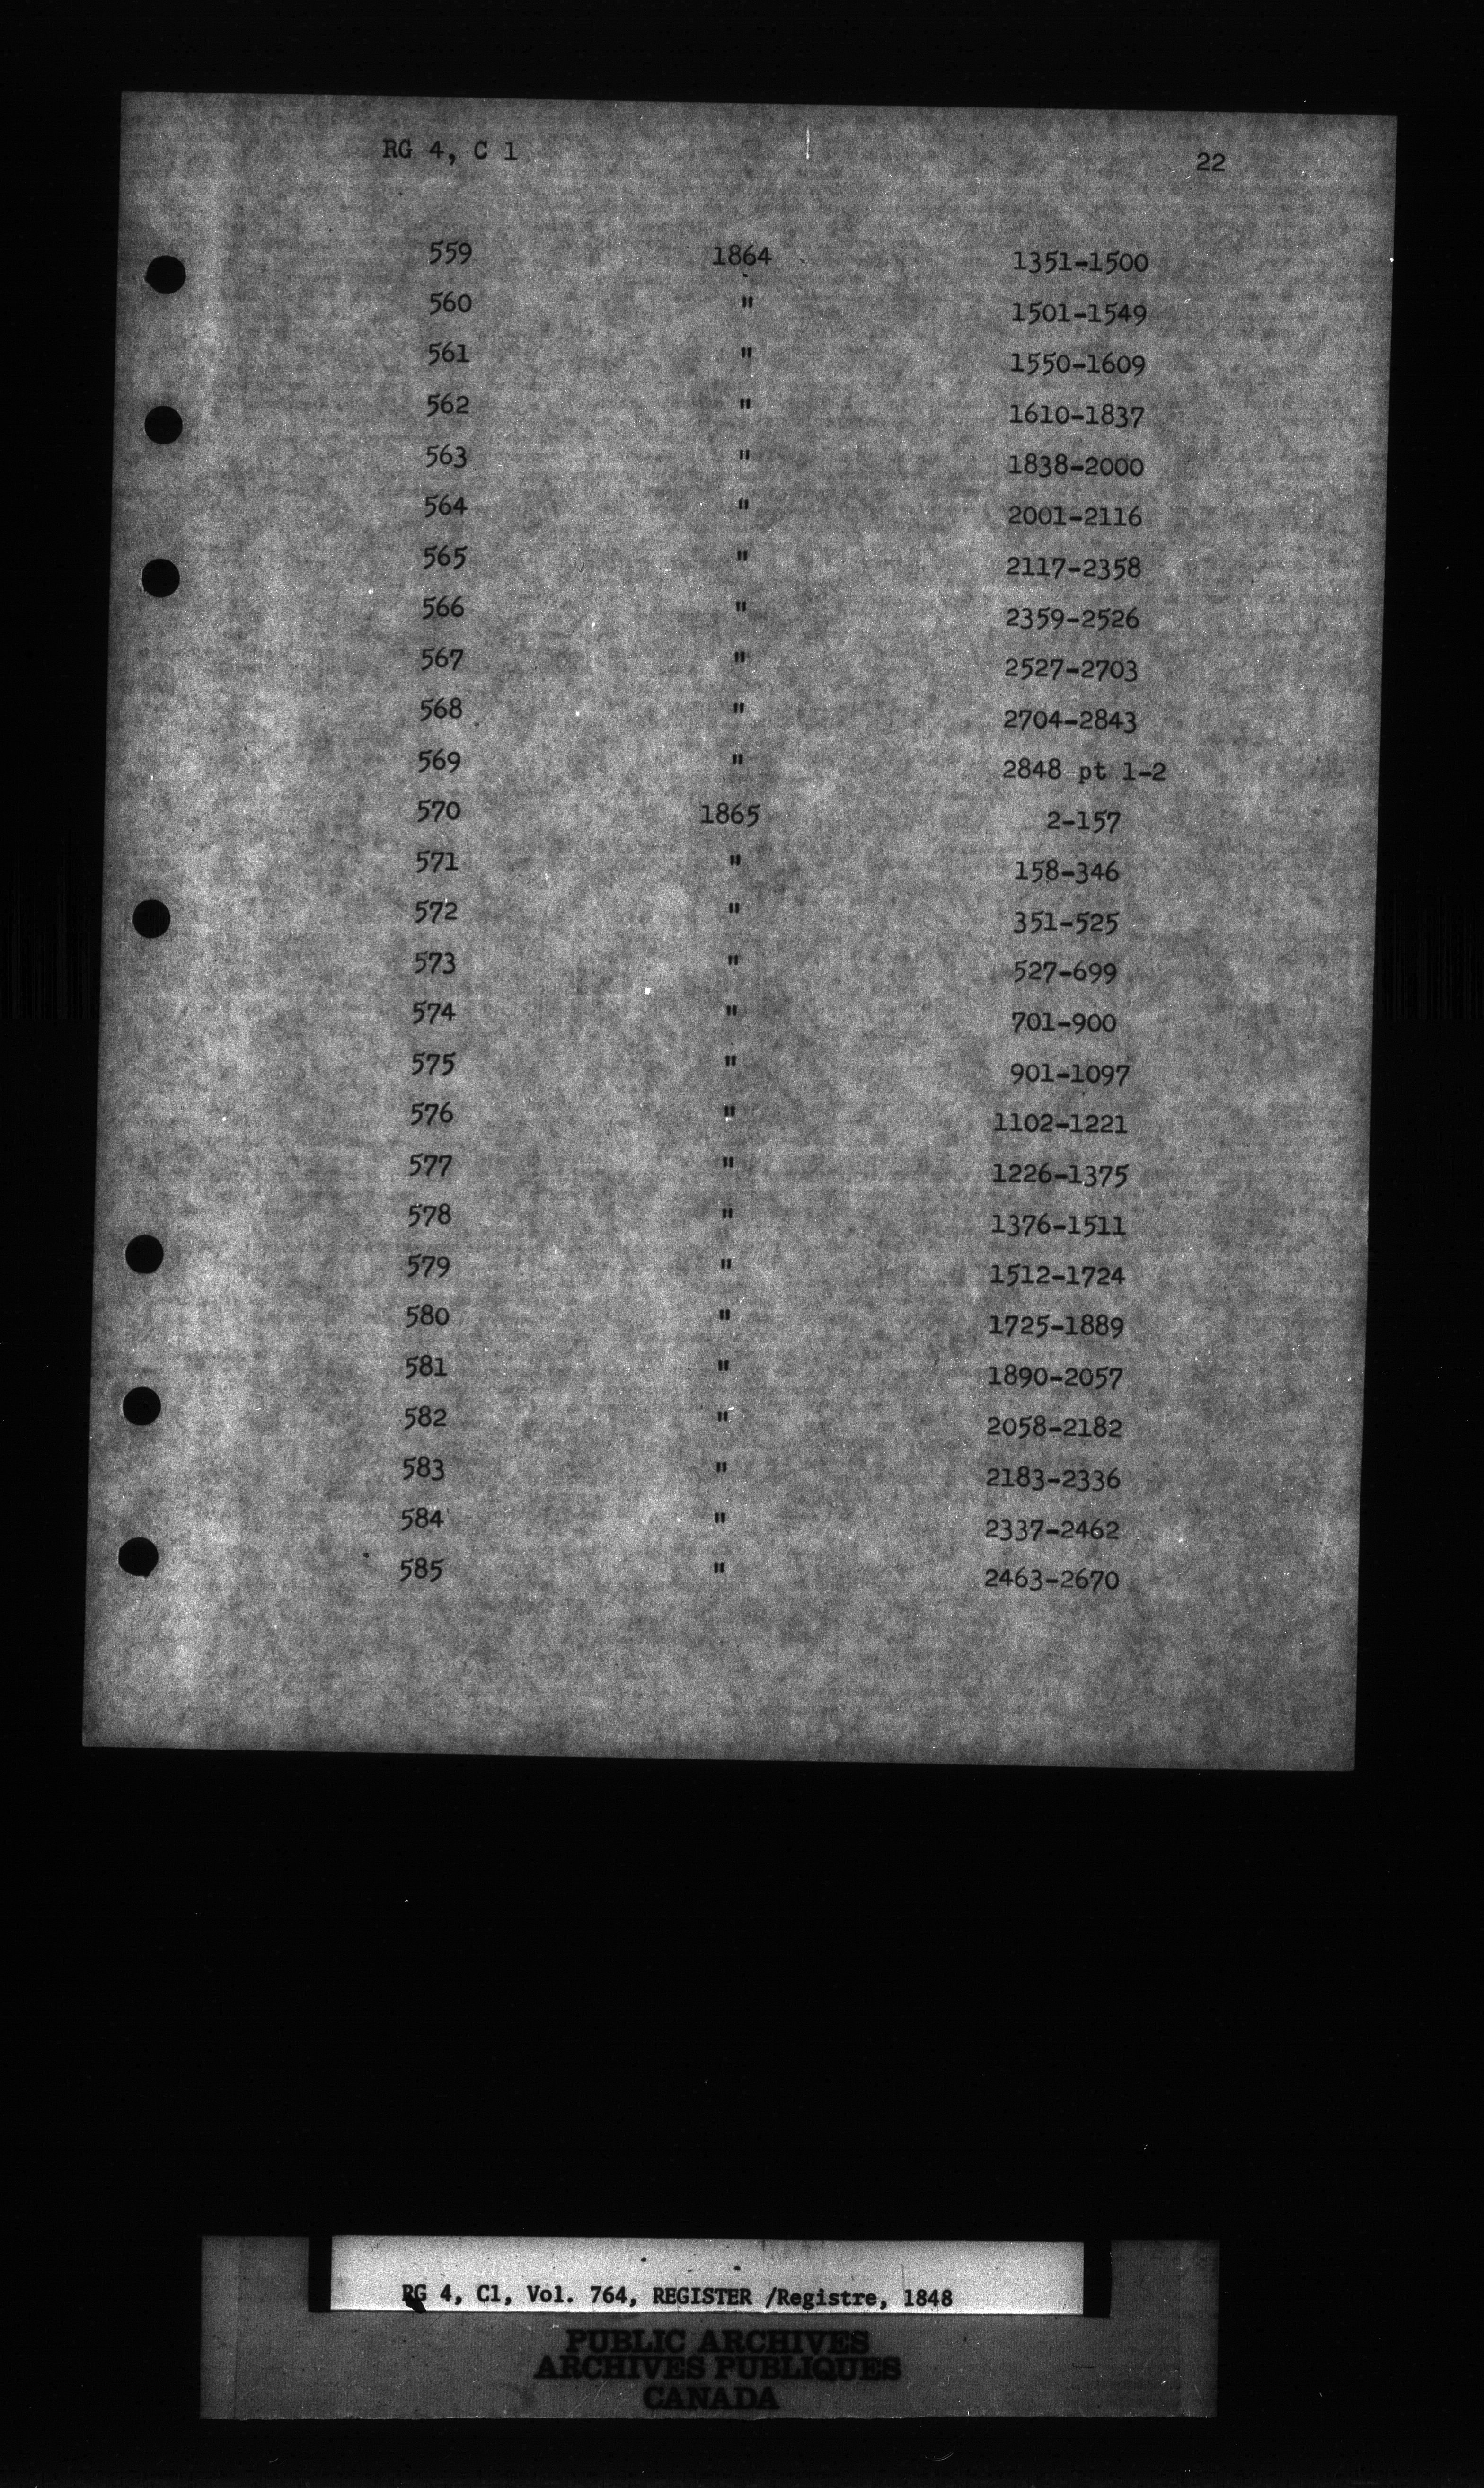 RG 4, C 1 22
559 1864 1351-1500
560 " 1501-1549
561 " 1550-1609
562 " 1610-1837
563 " 1838-2000
564 " 2001-2116
565 " 2117-2358
566 " 2359-2526
567 " 2527-2703
568 " 2704-2843
569 " 2848 pt 1-2
570 1865 2-157
571 " 158-346
572 " 351-525
573 " 527-699
574 " 701-900
575 " 901-1097
576 " 1102-1221
577 " 1226-1375
578 " 1376-1511
579 " 1512-1724
580 " 1725-1889
581 " 1890-2057
582 " 2058-2182
583 " 2183-2336
584 " 2337-2462
585 " 2463-2670
RG 4, C1, Vol. 764, REGISTER /Registre, 1848
PUBLIC ARCHIVES
ARCHIVES PUBLIQUES
CANADA